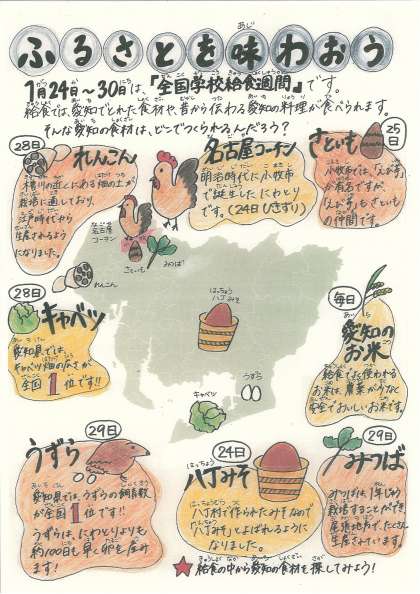 ふるさとを味わおう
1月24日～30日は、『全国学校給食週間』です。
給食では、愛知でとれた食材や、昔から伝わる愛知の料理が食べられます。
そんな愛知の食材は、どこでつくられるんだろう？
28日
れんこん
木曽川の近くにある畑の土が
栽培に適しており、
江戸時代から
生産されるよう
になりました。
名古屋コーチン
明治時代に小牧市
で誕生したにわとり
です。(24日ひきずり)
25日
さといも
小牧市では、「えび芋」
が有名ですが、
「えび芋」もさといも
の仲間です。
なごや
名古屋
コーチン
さといも
みつば
れんこん
はっちょう
八丁みそ
うずら
キャベツ
28日
キャベツ
愛知県では、
キャベツ畑の広さが
全国1位です!!
毎日
愛知の
お米
給食で使われる
お米は、農薬が少なく
安全でおいしいお米です。
29日
うずら
愛知県では、うずらの飼育数
が全国1位です!!
うずらは、にわとりよりも
約100日も早く卵を産み
ます!
24日
はっちょう
八丁みそ
八丁村で作られたみそなので
「八丁みそ」とよばれるように
なりました。
29日
みつば
みつばは、1年じゅう
栽培することができ
尾張地方で、たくさん
生産されています。
★給食の中から愛知の食材を探してみよう!